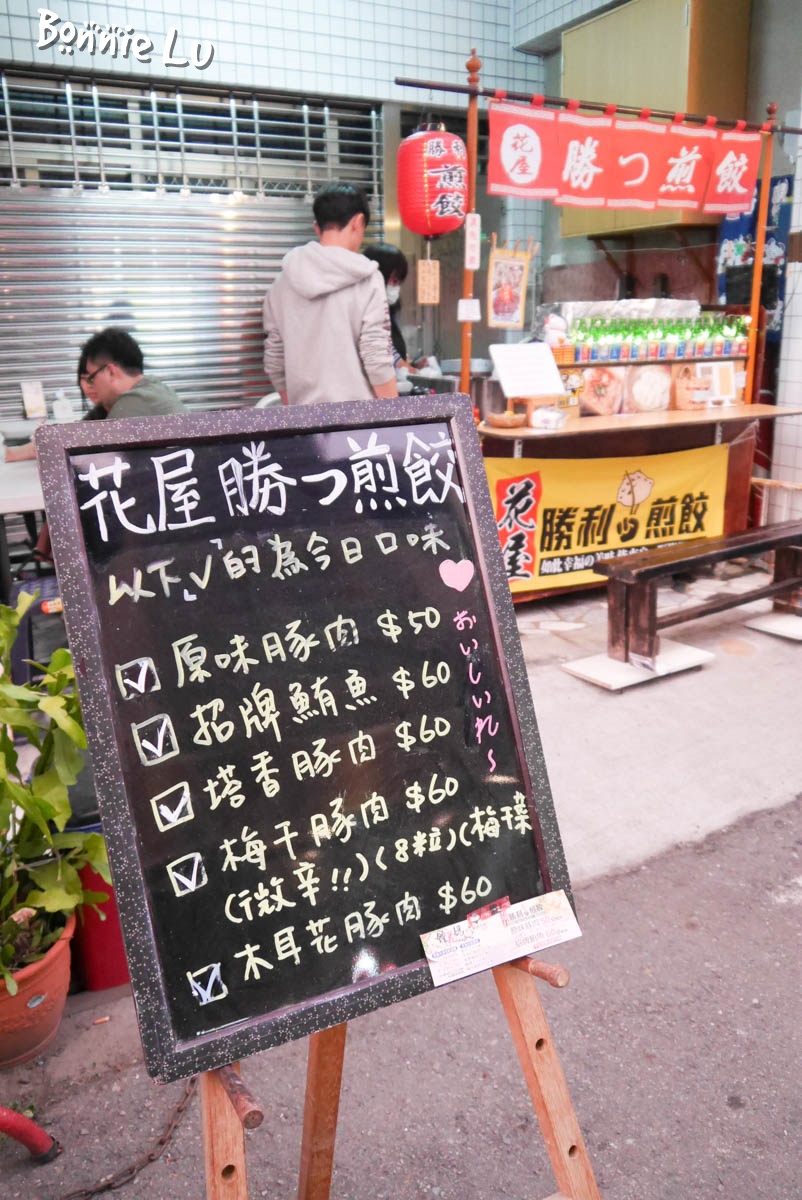 Bonnie Lu
花屋
勝つ煎餃
勝利
煎餃
花屋
勝利つ煎餃
花屋勝つ煎餃
以下"V"的為今日口味
原味豚肉 $50
招牌鮪魚 $60
塔香豚肉 $60
梅干豚肉 $60
(微辛!!)(8粒)(梅干菜
木耳花豚肉 $60
おいしいれ~